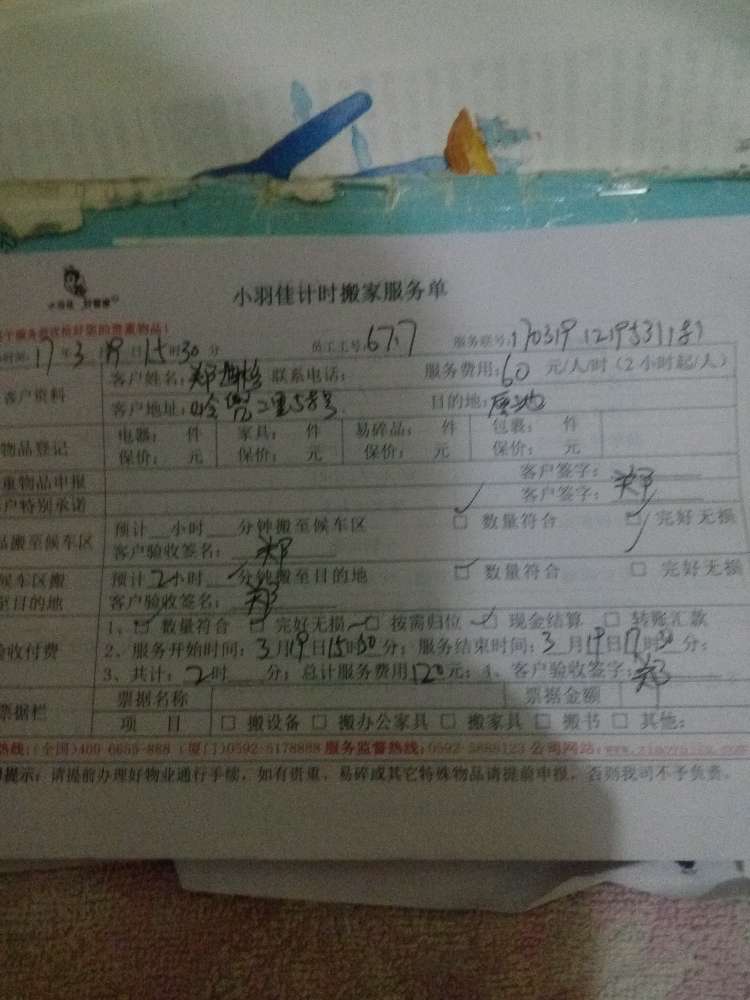 小羽佳计时搬家服务单
时间：17年3月19日15时30分 员工工号：6717 服务联号：170319
客户资料 客户姓名：郑 联系电话： 服务费用：60 元/人/时（2小时起/人）
客户地址：岭兜二里58号 目的地：原地
物品登记 电器： 件 家具： 件 易碎品： 件 包裹： 件
保价： 元 保价： 元 保价： 元 保价： 元
重物品申报 客户签字：
户特别承诺 客户签字：郑
品搬至候车区 预计 小时 分钟搬至候车区 □ 数量符合 □ 完好无损
客户验收签名：郑
候车区搬 预计2小时 分钟搬至目的地 □ 数量符合 □ 完好无损
至目的地 客户验收签名：郑
验收付费 1、□ 数量符合 □ 完好无损 □ 按需归位 □ 现金结算 □ 转账汇款
2、服务开始时间：3月19日15时30分；服务结束时间：3月19日17时30分；
3、共计：2时 分；总计服务费用120元；4、客户验收签字：郑
票据栏 票据名称 票据金额
项 目 □ 搬设备 □ 搬办公家具 □ 搬家具 □ 搬书 □ 其他：
热线：（全国）400-6655-888（厦门）0592-5178888 服务监督热线：0592-5888123 公司网站：
提示：请提前办理好物业通行手续，如有贵重、易碎或其它特殊物品请提前申报，否则我司不予负责。